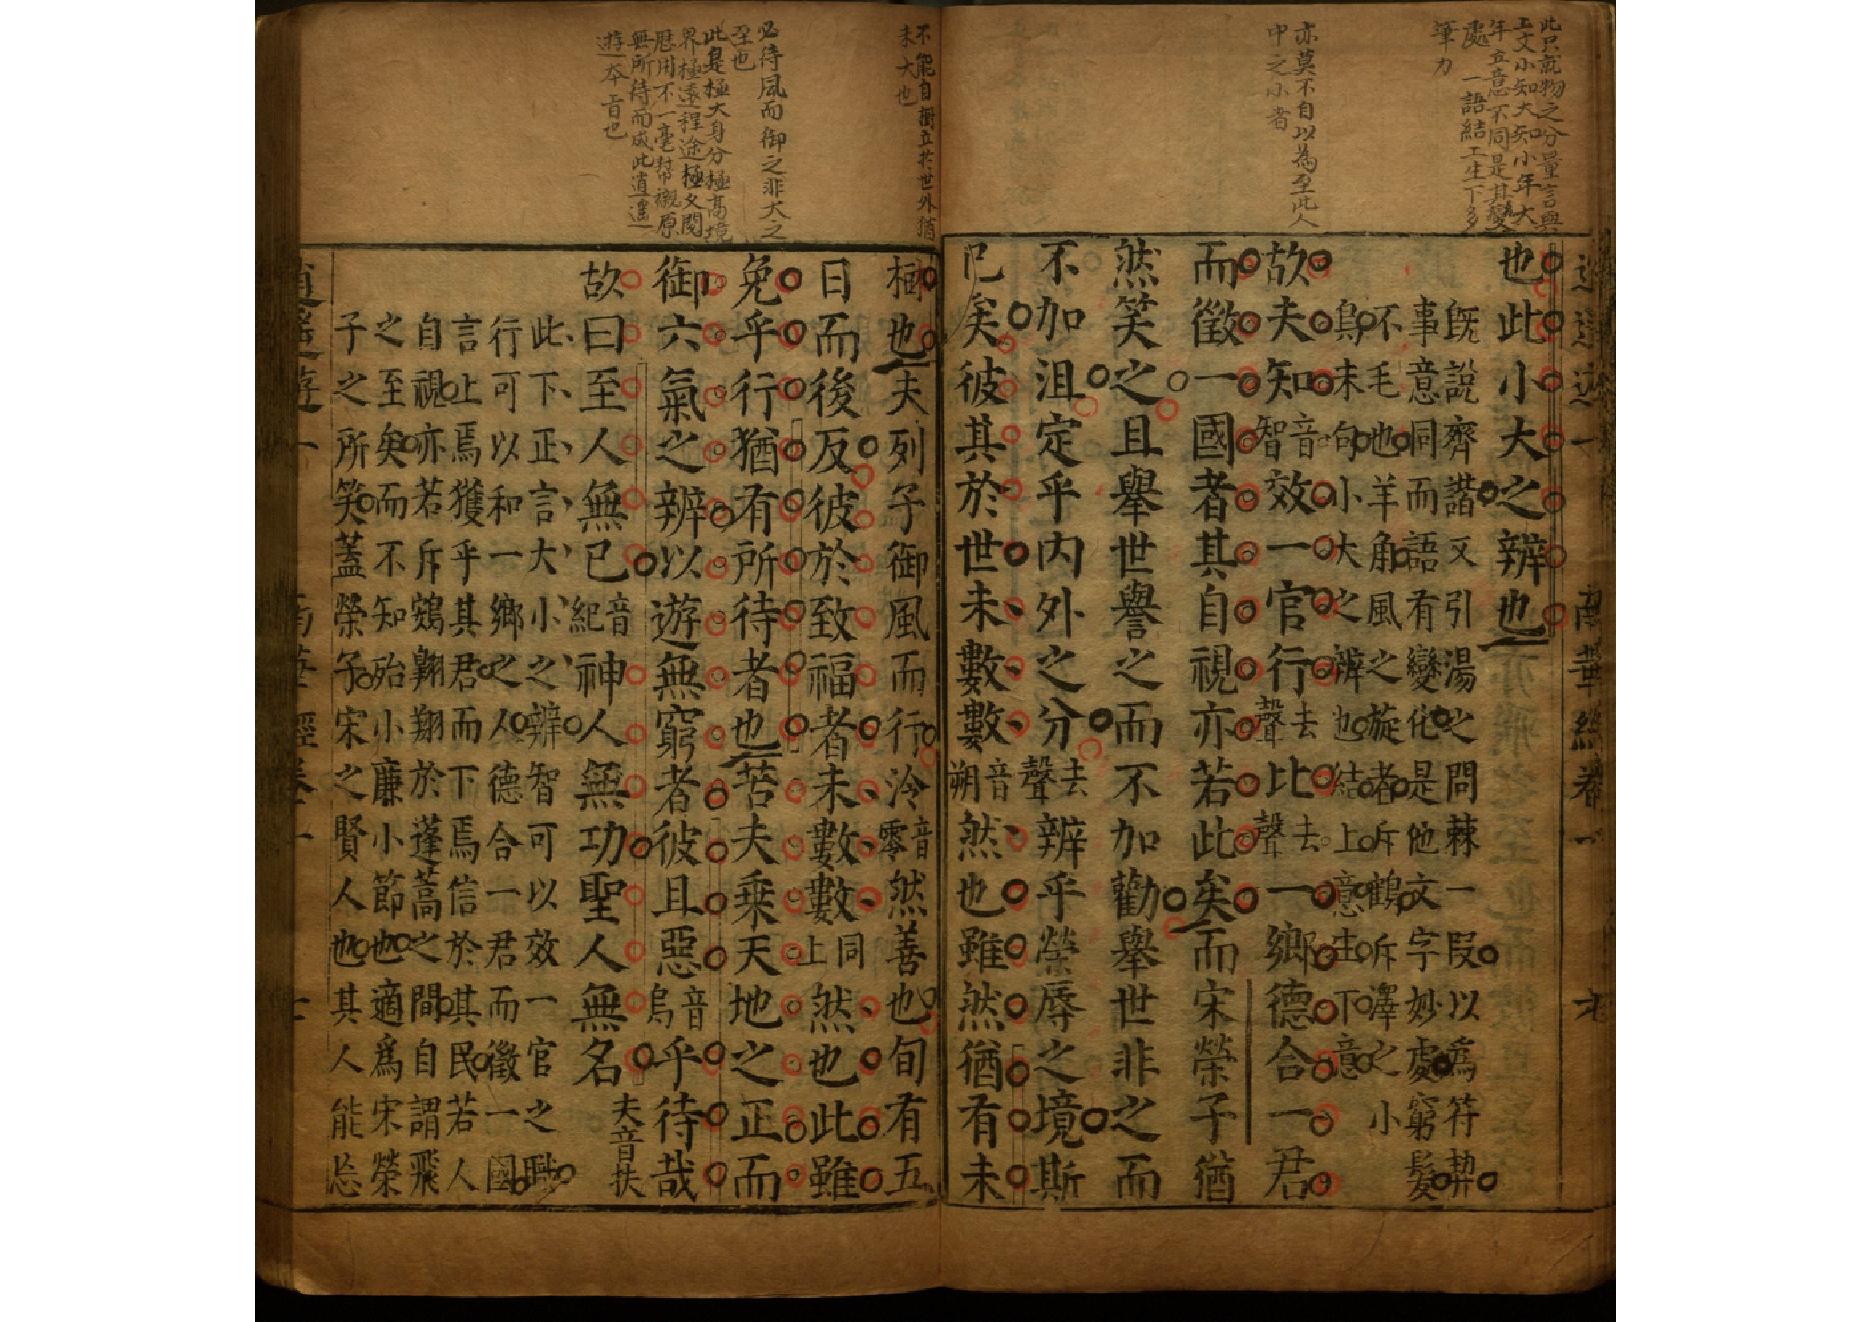 此只就物之分量言與
上文小知大知小年大
年立意不同是其變
處一語結上生下多
筆力
亦莫不自以為至此人
中之小者
也此小大之辨也
既說齊諧又引湯之問棘一段以為符契
事意同而語有變化是他文字妙處窮髮
不毛也羊角風之旋者斥鷃斥澤之小
鳥未句小大之辨也結上意生下意
故夫知音智效一官行去聲比去聲一鄉德合一君
而徵一國者其自視亦若此矣而宋榮子猶
然笑之且舉世譽之而不加勸舉世非之而
不加沮定乎內外之分去聲辨乎榮辱之境斯
已矣彼其於世未數數音朔然也雖然猶有未
不能自樹立於世外猶
未大也
必待風而御之非大之
至也
此是極大身分極高境
界極遠程途極久閱
歷用不一毫幫襯原
無所待而成此逍遙
遊本旨也
樹也夫列子御風而行泠音零然善也旬有五
日而後反彼於致福者未數數同上然也此雖
免乎行猶有所待者也若夫乘天地之正而
御六氣之辨以遊無窮者彼且惡音烏乎待哉
故曰至人無己音紀神人無功聖人無名夫音扶
此下正言大小之辨智可以效一官之職
行可以和一鄉之人德合一君而徵一國
言上焉獲乎其君而下焉信於其民若人
自視亦若斥鴳翱翔於蓬蒿之間自謂飛
之至矣而不知殆小廉小節也適為宋榮
子之所笑蓋榮子宋之賢人也其人能忘
逍遙遊 南華經卷一 七